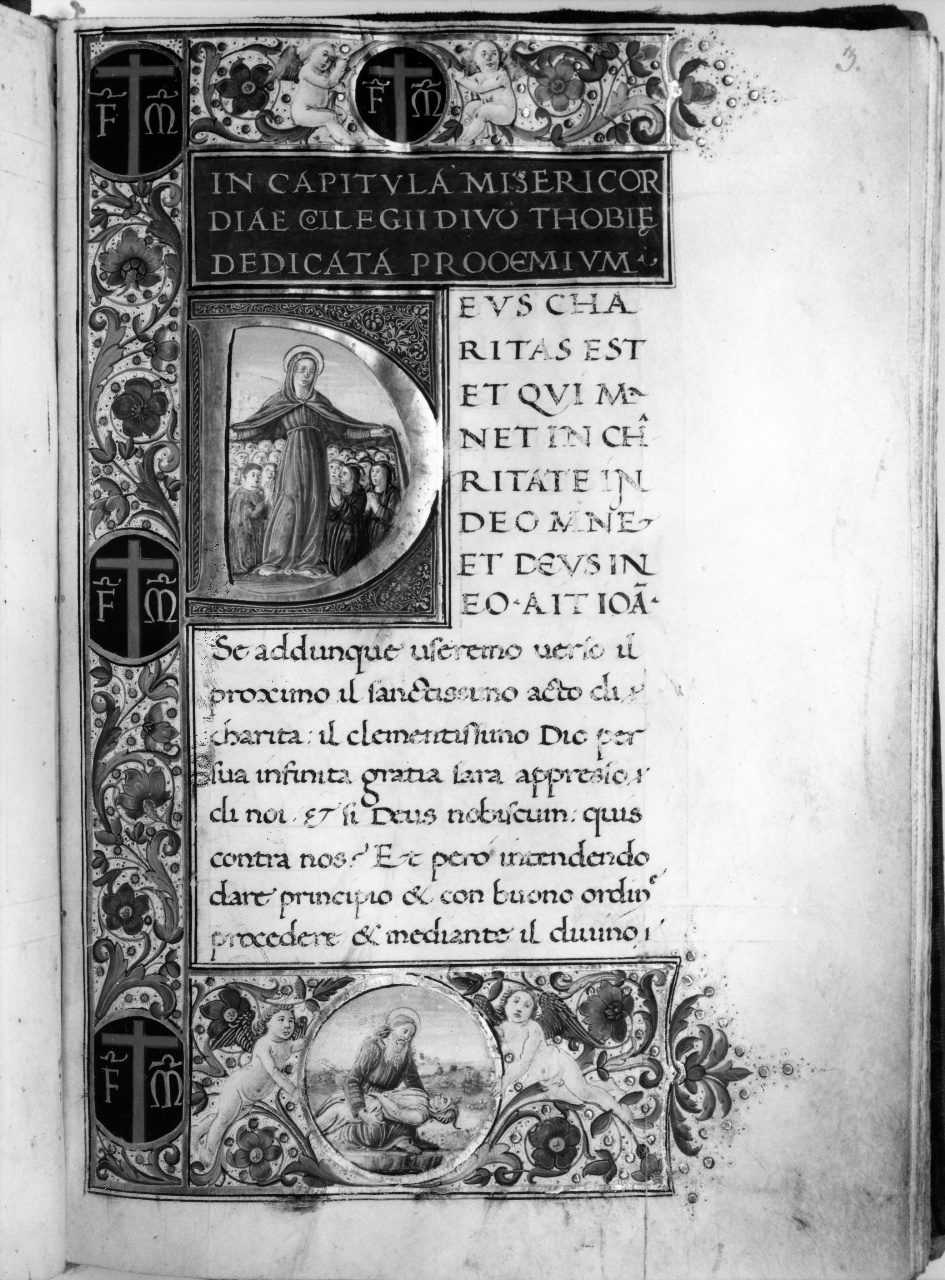 3.
F M
F M
IN CAPITVLA MISERICOR
DIAE COLLEGII DIVO THOBIĘ
DEDICATA PROOEMIVM
DEVS CHA
RITAS EST
ET QVI MA
NET IN CHA
RITATE IN
DEO MANE
ET DEVS IN
EO·AIT IOÃ·
F M
Se addunque useremo verso il
proximo il sanctissimo acto di
charita: il clementissimo Dio per
sua infinita gratia sara appresso
di noi. & si Deus nobiscum: quis
contra nos? Et pero intendendo
dare principio & con buono ordine
procedere & mediante il divino
F M